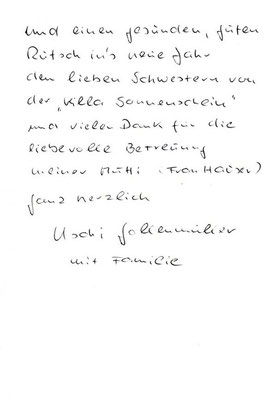 und einen gesunden, guten
Rutsch in's neue Jahr
den lieben Schwestern von
der „Villa Sonnenschein"
und vielen Dank für die
liebevolle Betreuung
meiner Mutti (Frau Hauser)
ganz herzlich
Uschi
mit Familie